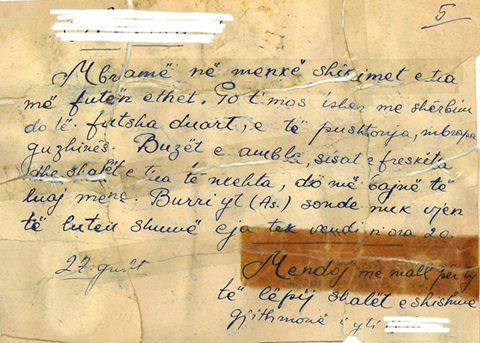 5
Mbramë në menxë shikimet e tua
më futën ethet. Po t'mos ishem me shërbim
do të futsha duart, e të pushtonja, mbrapa
guzhinës. Buzët e ambla, sisat e freskita
dhe shalët e tua të nxehta, do më bajnë të
luaj mënç. Burri yt (As.) sonde nuk vjen
të lutem shumë eja tek vendi n'ora 20.
27. gusht
Mendoj me mall për ty
të lëpij shalët e shishme
gjithmonë i yti